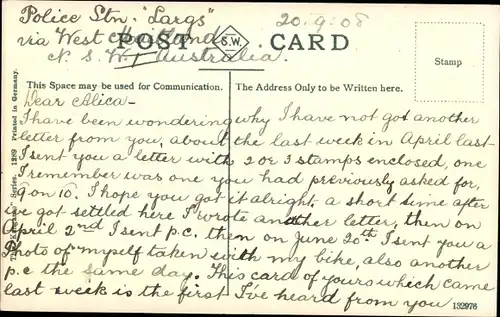 Police Stn. "Largs"
20.9.08
via West Maitland
N.S.W. Australia.
POST S.W. CARD
Stamp
This Space may be used for Communication.
The Address Only to be Written here.
Series. 1289 Printed in Germany.
Dear Alica-
I have been wondering why I have not got another
letter from you, about the last week in April last
I sent you a letter with 2 or 3 stamps enclosed, one
I remember was one you had previously asked for,
9 on 10. I hope you got it alright. a short time after
I'd got settled here I wrote another letter, then on
April 2nd I sent p.c. then on June 20th I sent you a
Photo of myself taken with my bike, also another
p.c the same day. This card of yours which came
last week is the first I've heard from you
132976